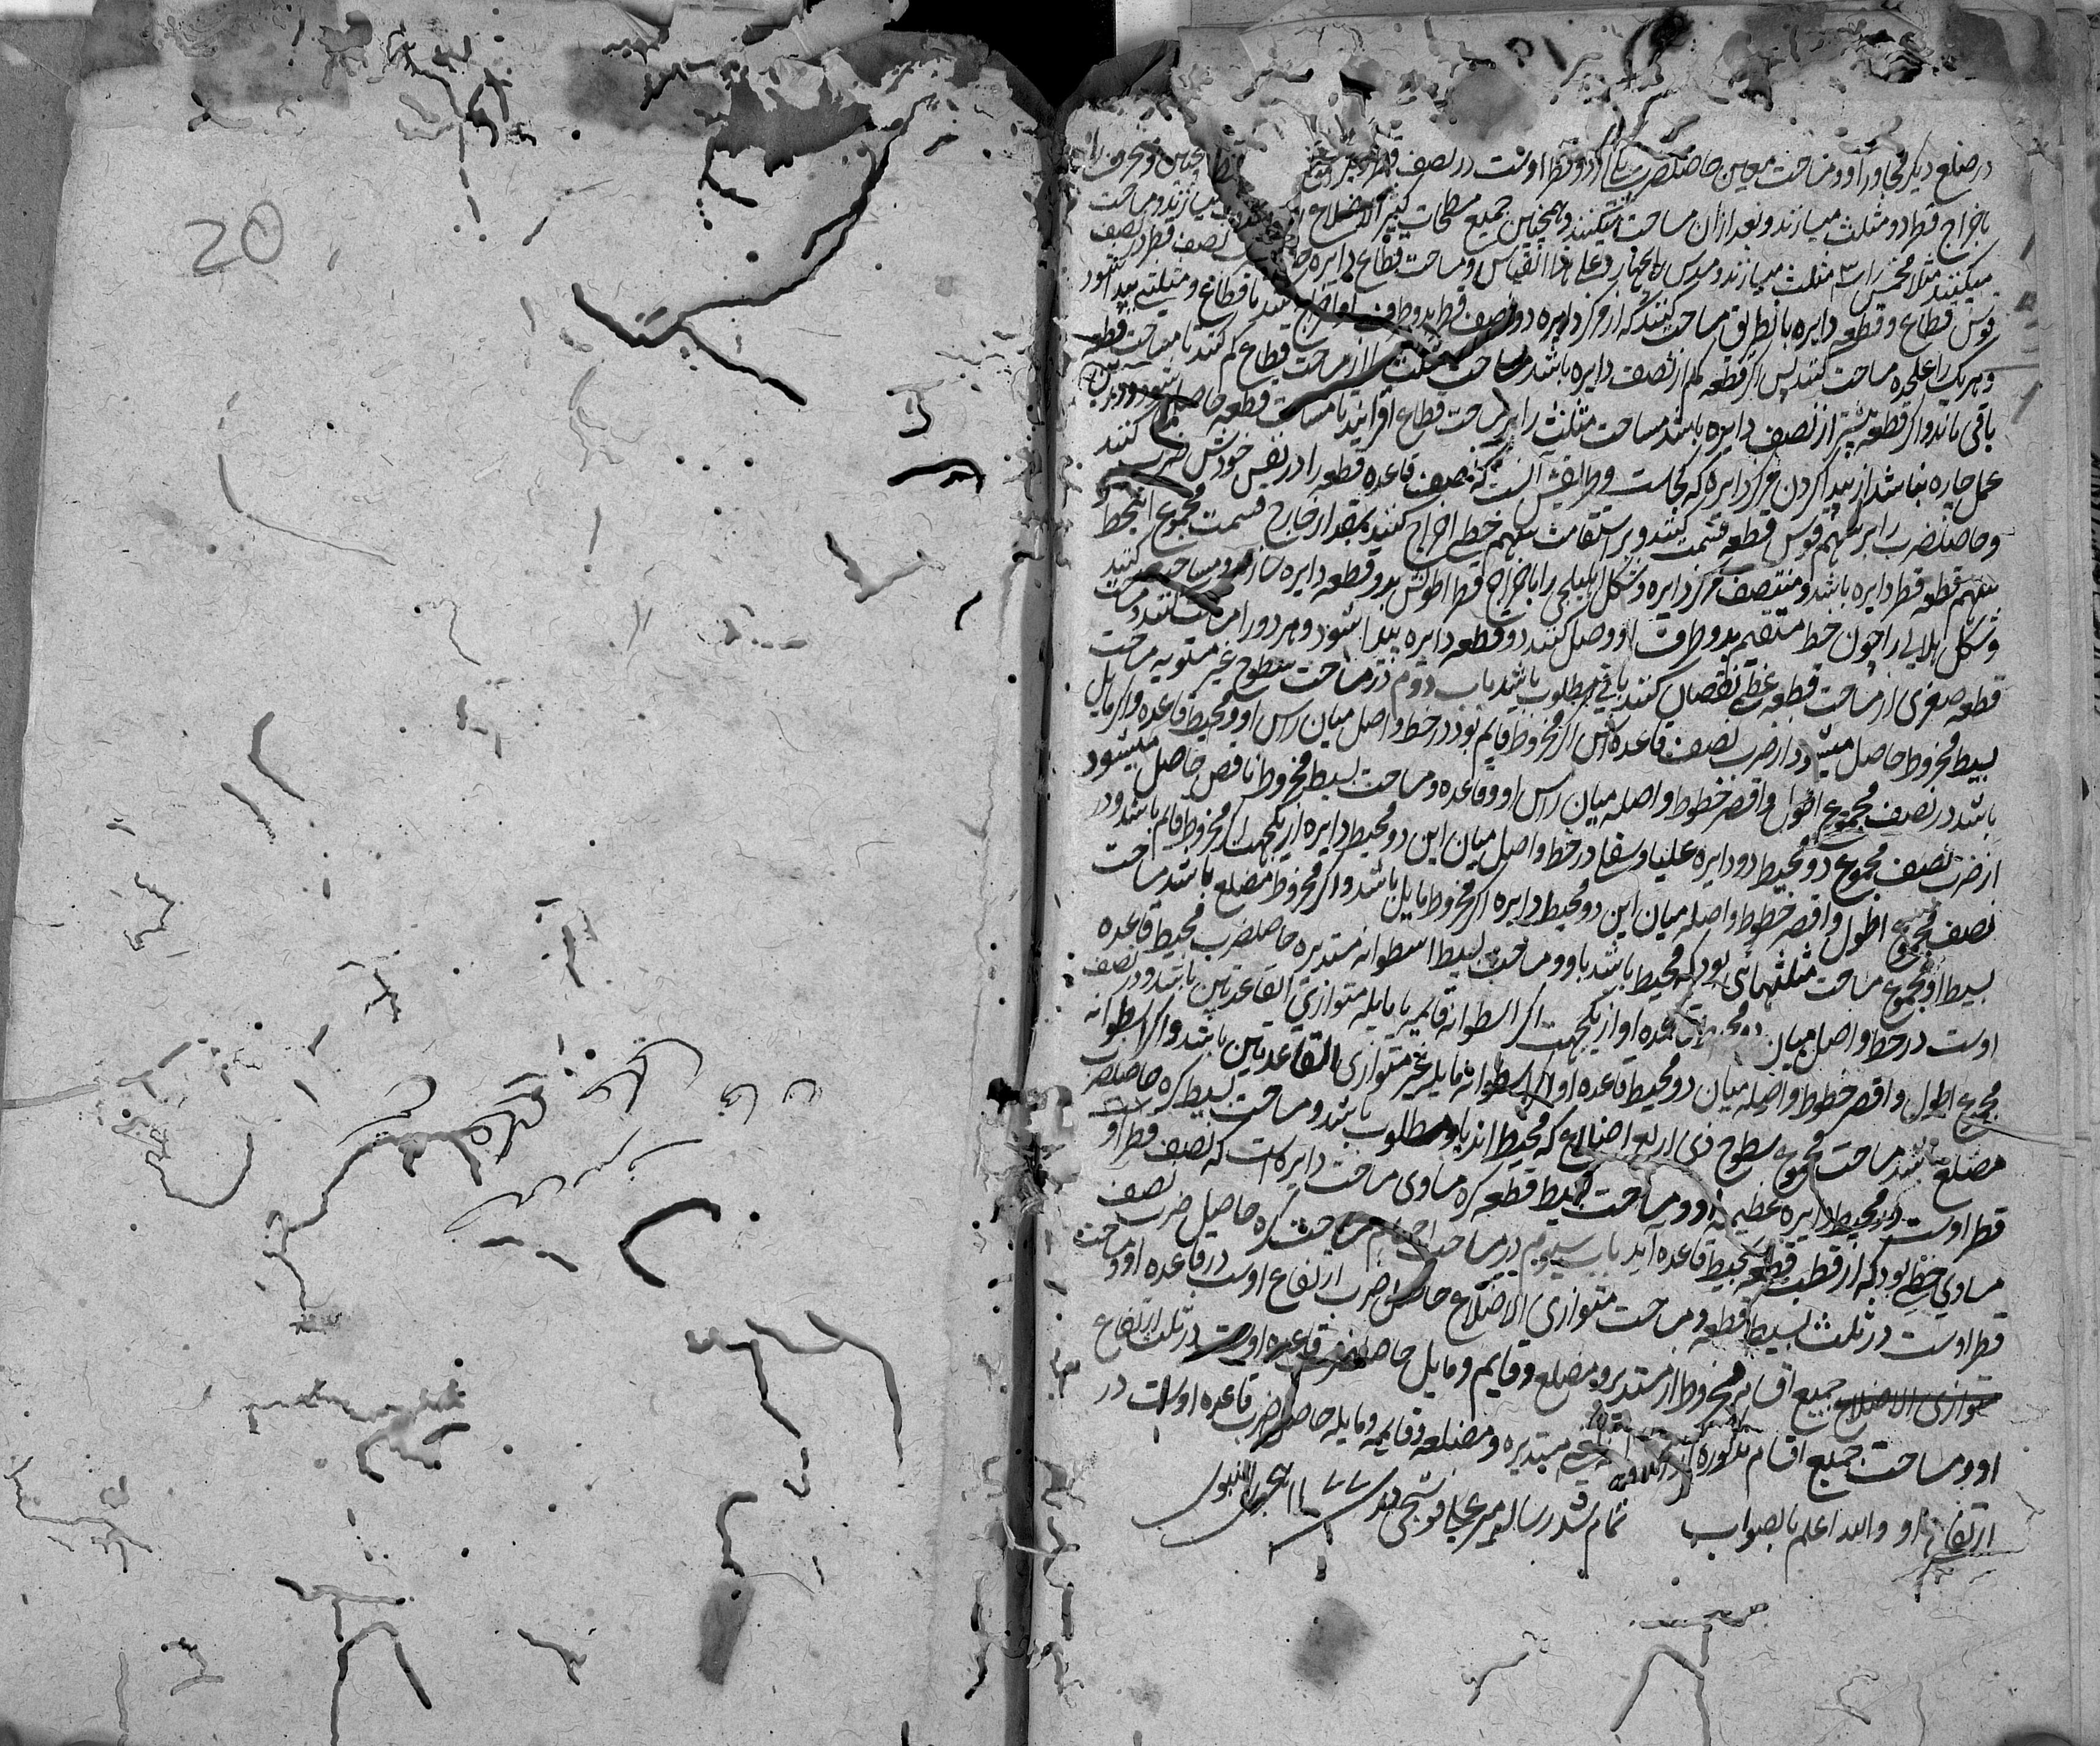 در ضلع دیکر مجاور او و مساحت معین حاصلضرب یکی از دو قطر اوست در نصف قطر دیکر
باخراج قطر دو مثلث میسازند و بعد از آن مساحت میکنند و همچنین جمیع سطحات کثیر الاضلاع میسازند و مساحت
میکنند مثلا مخمس را سه مثلث میسازند و مسدس را چهار و علی هذا القیاس و مساحت قطاع دایره نصف قطر در نصف
قوس قطاع و قطعه دایره باینطریق مساحت کنند که از مرکز دایره دو نصف قطر بدو طرف او اخراج کنند تا قطاع و مثلثی پیدا شود
و هر یک را علحده مساحت کنند پس اکر قطعه کم از نصف دایره باشد مساحت مثلث را از مساحت قطاع کم کنند تا مساحت قطعه
باقی ماند و اکر قطعه بیشتر از نصف دایره باشد مساحت مثلث را بر مساحت قطاع افزایند تا مساحت قطعه حاصل شود و درین
عمل چاره نباشد از پیدا کردن مرکز دایره که کجاست و طریقش آنست که نصف قاعده قطعه را در نفس خودش ضرب کنند
و حاصلضرب را بر سهم قوس قطعه قسمت کنند و بر استقامت سهم خطی اخراج کنند بمقدار خارج قسمت مجموع اینخط
سهم قطعه قطر دایره باشد و منتصف مرکز دایره و شکل اهلیلجی را باخراج قطر اطولش بدو قطعه دایره سازند و مساحت کنند
و شکل هلالی را چون خط مستقیم بدو طرف او وصل کنند دو قطعه دایره پیدا شود و هر دو را مساحت کنند و مساحت
قطعه صغری از مساحت قطعه عظمی نقصان کنند باقی مطلوب باشد باب دوم در مساحت سطوح غیر مستویه مساحت
بسیط مخروط حاصل میشود از ضرب نصف قاعده اش اکر مخروط قایم بود در خط واصل میان راس او و محیط قاعده و اکر مایل
باشد در نصف مجموع اطول و اقصر خطوط واصله میان راس او و قاعده و مساحت بسیط مخروط ناقص حاصل میشود
از ضرب نصف مجموع دو محیط دو دایره علیا و سفلی در خط واصل میان این دو محیط دایره از یکجهت اکر مخروط قایم باشد و در
نصف مجموع اطول و اقصر خطوط واصله میان این دو محیط دایره اکر مخروط مایل باشد و اکر مخروط مضلع باشد مساحت
بسیط او مجموع مساحت مثلثهائی بود که محیط باشد باو و مساحت بسیط اسطوانه مستدیره حاصلضرب محیط قاعده
اوست در خط واصل میان دو محیط قاعده او از یکجهت اکر اسطوانه قایمه یا مایله متوازی القاعدتین باشد و در نصف
مجموع اطول و اقصر خطوط واصله میان دو محیط قاعده او اکر اسطوانه مایله غیر متوازی القاعدتین باشد و اکر اسطوانه
مضلع باشد مساحت مجموع سطوح ذی اربع اضلاع که محیط اند باو مطلوب باشد و مساحت بسیط کره حاصلضرب
قطر اوست در محیط دایره عظیمه او و مساحت بسیط قطعه کره مساوی مساحت دایره است که نصف قطر او
مساوی خطی بود که از قطب قطعه بمحیط قاعده آید باب سیوم در مساحت اجسام مساحت کره حاصل ضرب نصف
قطر اوست در ثلث بسیط قطعه و مساحت متوازی الاضلاع حاصل ضرب ارتفاع اوست در قاعده او و مساحت
متوازی الاضلاع جمیع اقسام مخروط از مستدیر و مضلع و قایم و مایل حاصلضرب قاعده اوست در ثلث ارتفاع
او و مساحت جمیع اقسام مذکوره مستدیره و مضلعه و قایمه و مایله حاصل ضرب قاعده اوست در
ارتفاع او والله اعلم بالصواب تمام شد رساله میر علی قوشجی الهجری النبوی
20